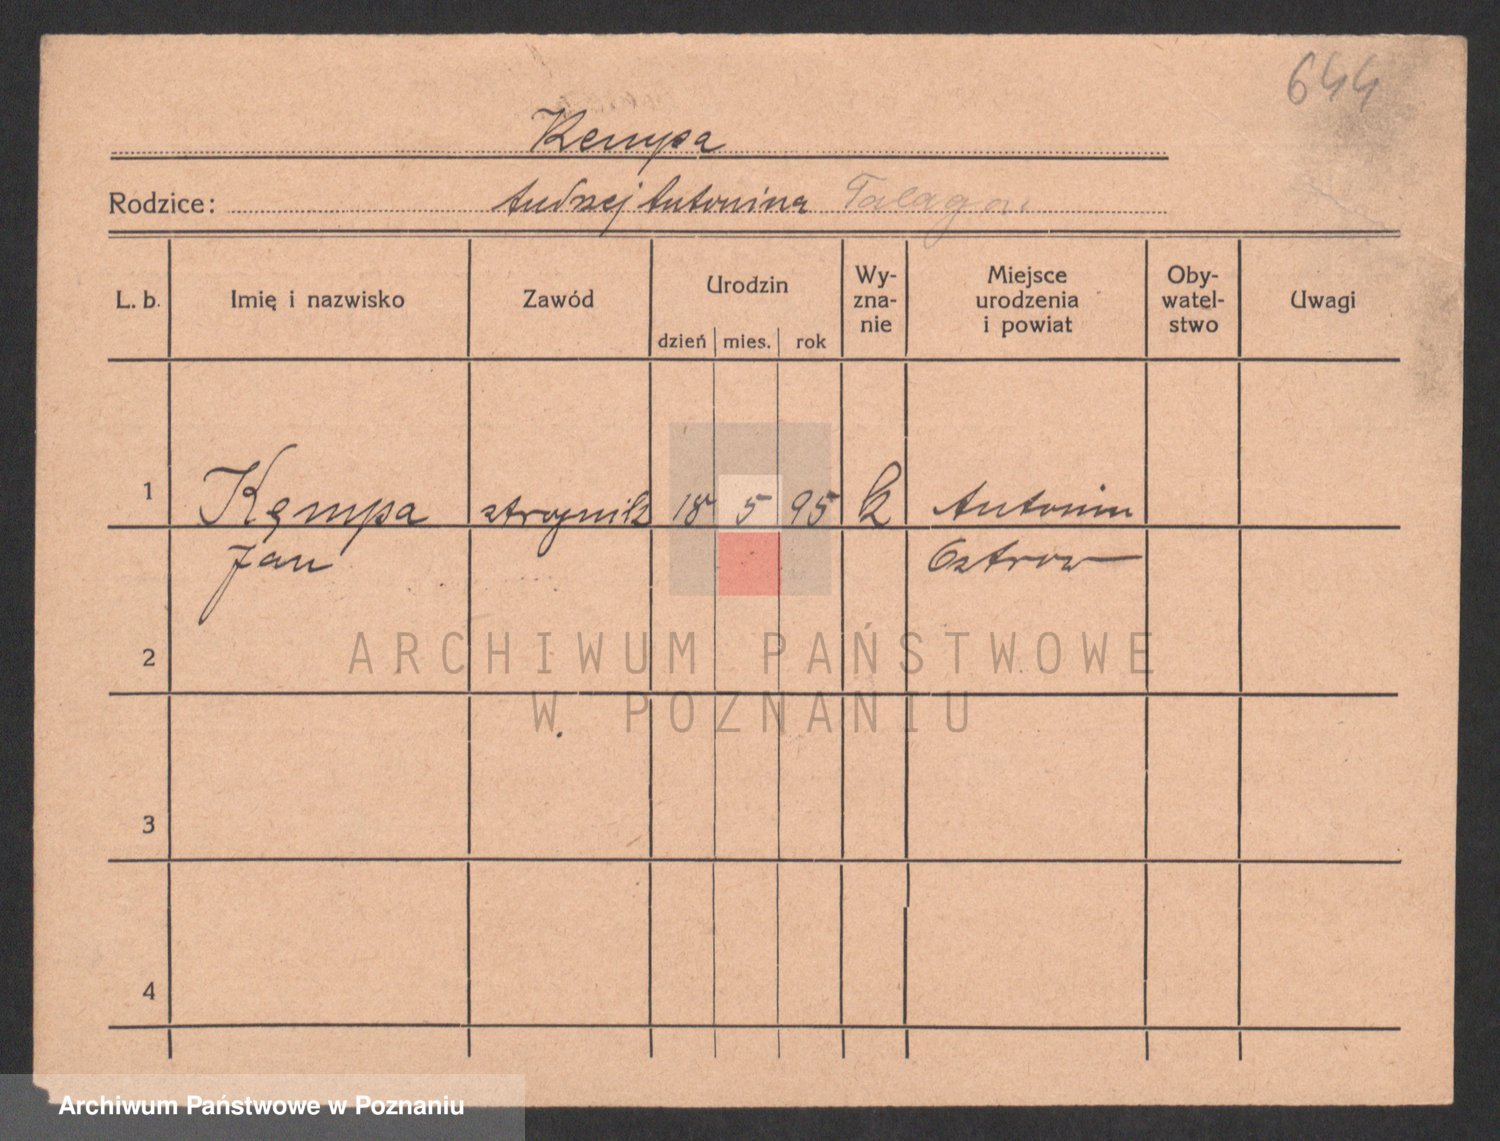 644
Kempa
Rodzice: Andrzej Antonina
L. b. Imię i nazwisko Zawód Urodzin dzień mies. rok Wy-zna-nie Miejsce urodzenia i powiat Oby-watel-stwo Uwagi
1 Kempa strojnik 18 5 95 k Antonin
Jan Ostrow
2
ARCHIWUM PAŃSTWOWE
W POZNANIU
3
4
Archiwum Państwowe w Poznaniu